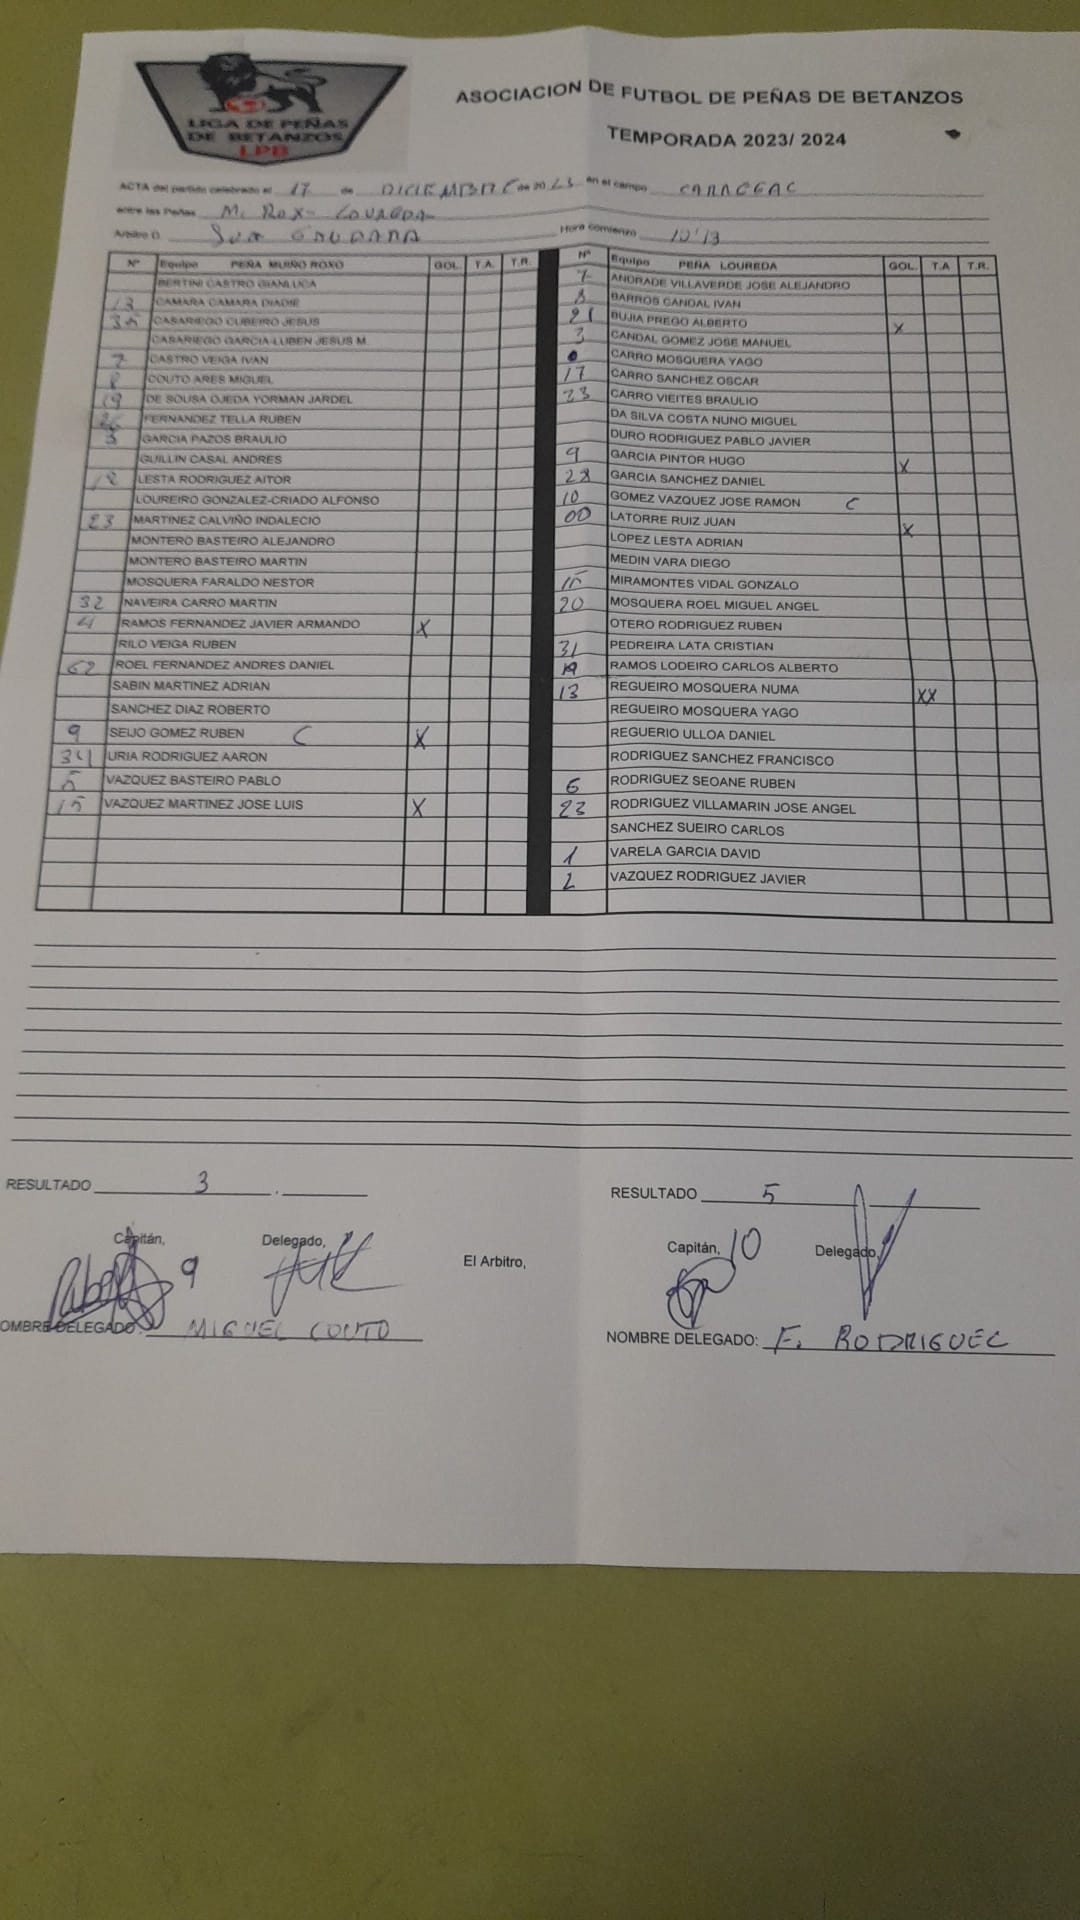 LIGA DE PEÑAS
DE BETANZOS
LPB
ASOCIACION DE FUTBOL DE PEÑAS DE BETANZOS
TEMPORADA 2023/ 2024
ACTA del partido celebrado el 17 de DICIEMBRE de 2023 en el campo
entre las Peñas M. ROX- LOUREDA
Arbitro D. Hora comienzo 10'13
Nº Equipo PEÑA MUIÑO ROXO GOL. T.A. T.R.
BERTINI CASTRO GIANLUCA
13 CAMARA CAMARA DIADIE
35 CASARIEGO CUBEIRO JESUS
CASARIEGO GARCIA-LUBEN JESUS M.
7 CASTRO VEIGA IVAN
8 COUTO ARES MIGUEL
19 DE SOUSA OJEDA YORMAN JARDEL
FERNANDEZ TELLA RUBEN
3 GARCIA PAZOS BRAULIO
GUILLIN CASAL ANDRES
18 LESTA RODRIGUEZ AITOR
LOUREIRO GONZALEZ-CRIADO ALFONSO
23 MARTINEZ CALVIÑO INDALECIO
MONTERO BASTEIRO ALEJANDRO
MONTERO BASTEIRO MARTIN
MOSQUERA FARALDO NESTOR
32 NAVEIRA CARRO MARTIN
4 RAMOS FERNANDEZ JAVIER ARMANDO X
RILO VEIGA RUBEN
62 ROEL FERNANDEZ ANDRES DANIEL
SABIN MARTINEZ ADRIAN
SANCHEZ DIAZ ROBERTO
9 SEIJO GOMEZ RUBEN C X
34 URIA RODRIGUEZ AARON
5 VAZQUEZ BASTEIRO PABLO
15 VAZQUEZ MARTINEZ JOSE LUIS X
Nº Equipo PEÑA LOUREDA GOL. T.A T.R.
7 ANDRADE VILLAVERDE JOSE ALEJANDRO
8 BARROS CANDAL IVAN
21 BUJIA PREGO ALBERTO X
3 CANDAL GOMEZ JOSE MANUEL
CARRO MOSQUERA YAGO
17 CARRO SANCHEZ OSCAR
23 CARRO VIEITES BRAULIO
DA SILVA COSTA NUNO MIGUEL
DURO RODRIGUEZ PABLO JAVIER
9 GARCIA PINTOR HUGO X
28 GARCIA SANCHEZ DANIEL
10 GOMEZ VAZQUEZ JOSE RAMON C
00 LATORRE RUIZ JUAN X
LOPEZ LESTA ADRIAN
MEDIN VARA DIEGO
15 MIRAMONTES VIDAL GONZALO
20 MOSQUERA ROEL MIGUEL ANGEL
OTERO RODRIGUEZ RUBEN
31 PEDREIRA LATA CRISTIAN
19 RAMOS LODEIRO CARLOS ALBERTO
13 REGUEIRO MOSQUERA NUMA XX
REGUEIRO MOSQUERA YAGO
REGUERIO ULLOA DANIEL
RODRIGUEZ SANCHEZ FRANCISCO
6 RODRIGUEZ SEOANE RUBEN
23 RODRIGUEZ VILLAMARIN JOSE ANGEL
SANCHEZ SUEIRO CARLOS
1 VARELA GARCIA DAVID
2 VAZQUEZ RODRIGUEZ JAVIER
RESULTADO 3
RESULTADO 5
Capitán, Delegado,
9
El Arbitro,
Capitán, 10 Delegado,
OMBRE DELEGADO: MIGUEL COUTO
NOMBRE DELEGADO: F. RODRIGUEZ